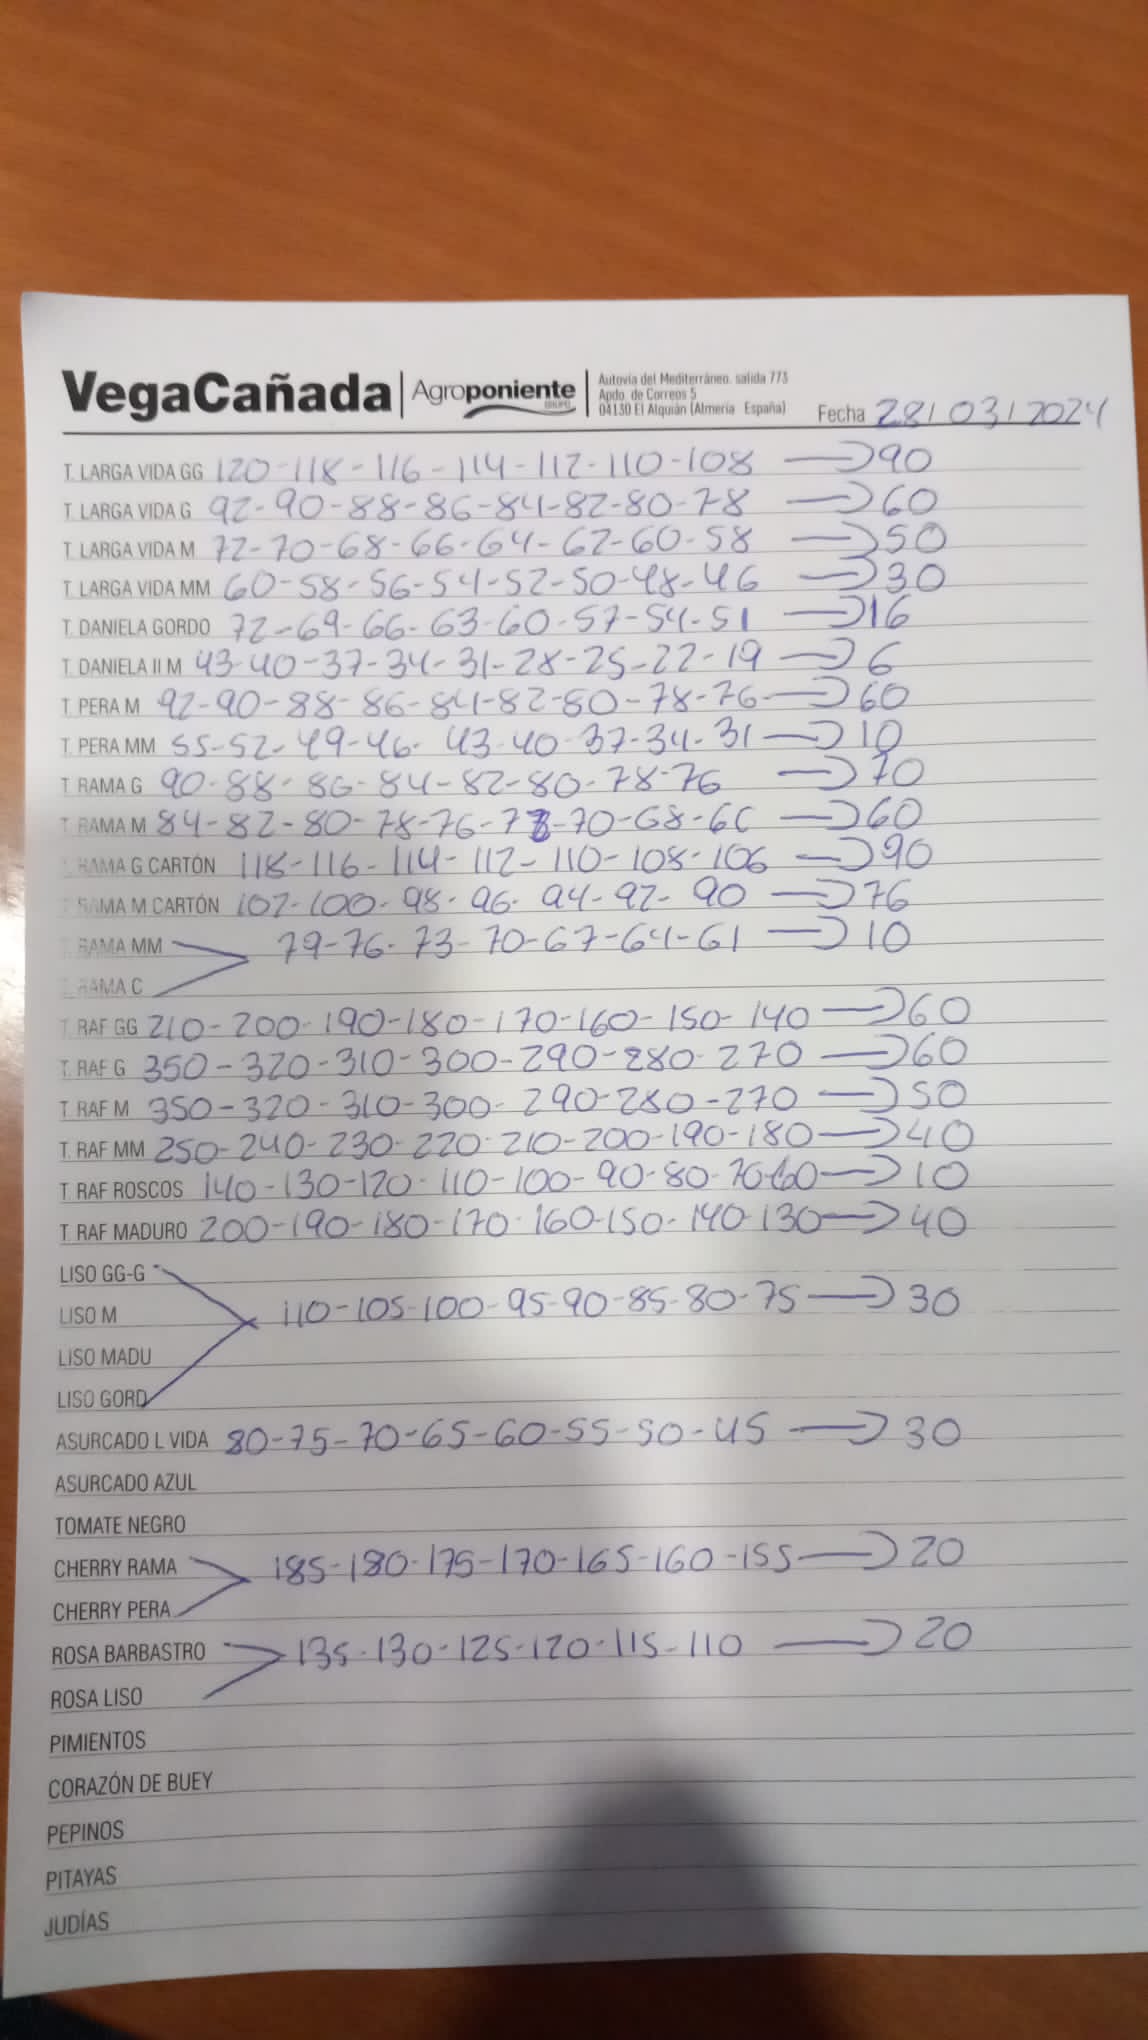 VegaCañada | Agroponiente GRUPO | Autovía del Mediterráneo. salida 773
Apdo. de Correos 5
04130 El Alquián (Almería España)
Fecha 28/03/2024
T. LARGA VIDA GG 120-118-116-114-112-110-108 → 90
T. LARGA VIDA G 92-90-88-86-84-82-80-78 → 60
T. LARGA VIDA M 72-70-68-66-64-62-60-58 → 50
T. LARGA VIDA MM 60-58-56-54-52-50-48-46 → 30
T. DANIELA GORDO 72-69-66-63-60-57-54-51 → 16
T. DANIELA II M 43-40-37-34-31-28-25-22-19 → 6
T. PERA M 92-90-88-86-84-82-80-78-76 → 60
T. PERA MM 55-52-49-46-43-40-37-34-31 → 10
T. RAMA G 90-88-86-84-82-80-78-76 → 70
T. RAMA M 84-82-80-78-76-73-70-68-66 → 60
T. RAMA G CARTÓN 118-116-114-112-110-108-106 → 90
T. RAMA M CARTÓN 102-100-98-96-94-92-90 → 76
T. RAMA MM 79-76-73-70-67-64-61 → 10
T. RAMA C
T. RAF GG 210-200-190-180-170-160-150-140 → 60
T. RAF G 350-320-310-300-290-280-270 → 60
T. RAF M 350-320-310-300-290-280-270 → 50
T. RAF MM 250-240-230-220-210-200-190-180 → 40
T. RAF ROSCOS 140-130-120-110-100-90-80-70-60 → 10
T. RAF MADURO 200-190-180-170-160-150-140-130 → 40
LISO GG-G
LISO M 110-105-100-95-90-85-80-75 → 30
LISO MADU
LISO GORD
ASURCADO L VIDA 80-75-70-65-60-55-50-45 → 30
ASURCADO AZUL
TOMATE NEGRO
CHERRY RAMA 185-180-175-170-165-160-155 → 20
CHERRY PERA
ROSA BARBASTRO 135-130-125-120-115-110 → 20
ROSA LISO
PIMIENTOS
CORAZÓN DE BUEY
PEPINOS
PITAYAS
JUDÍAS